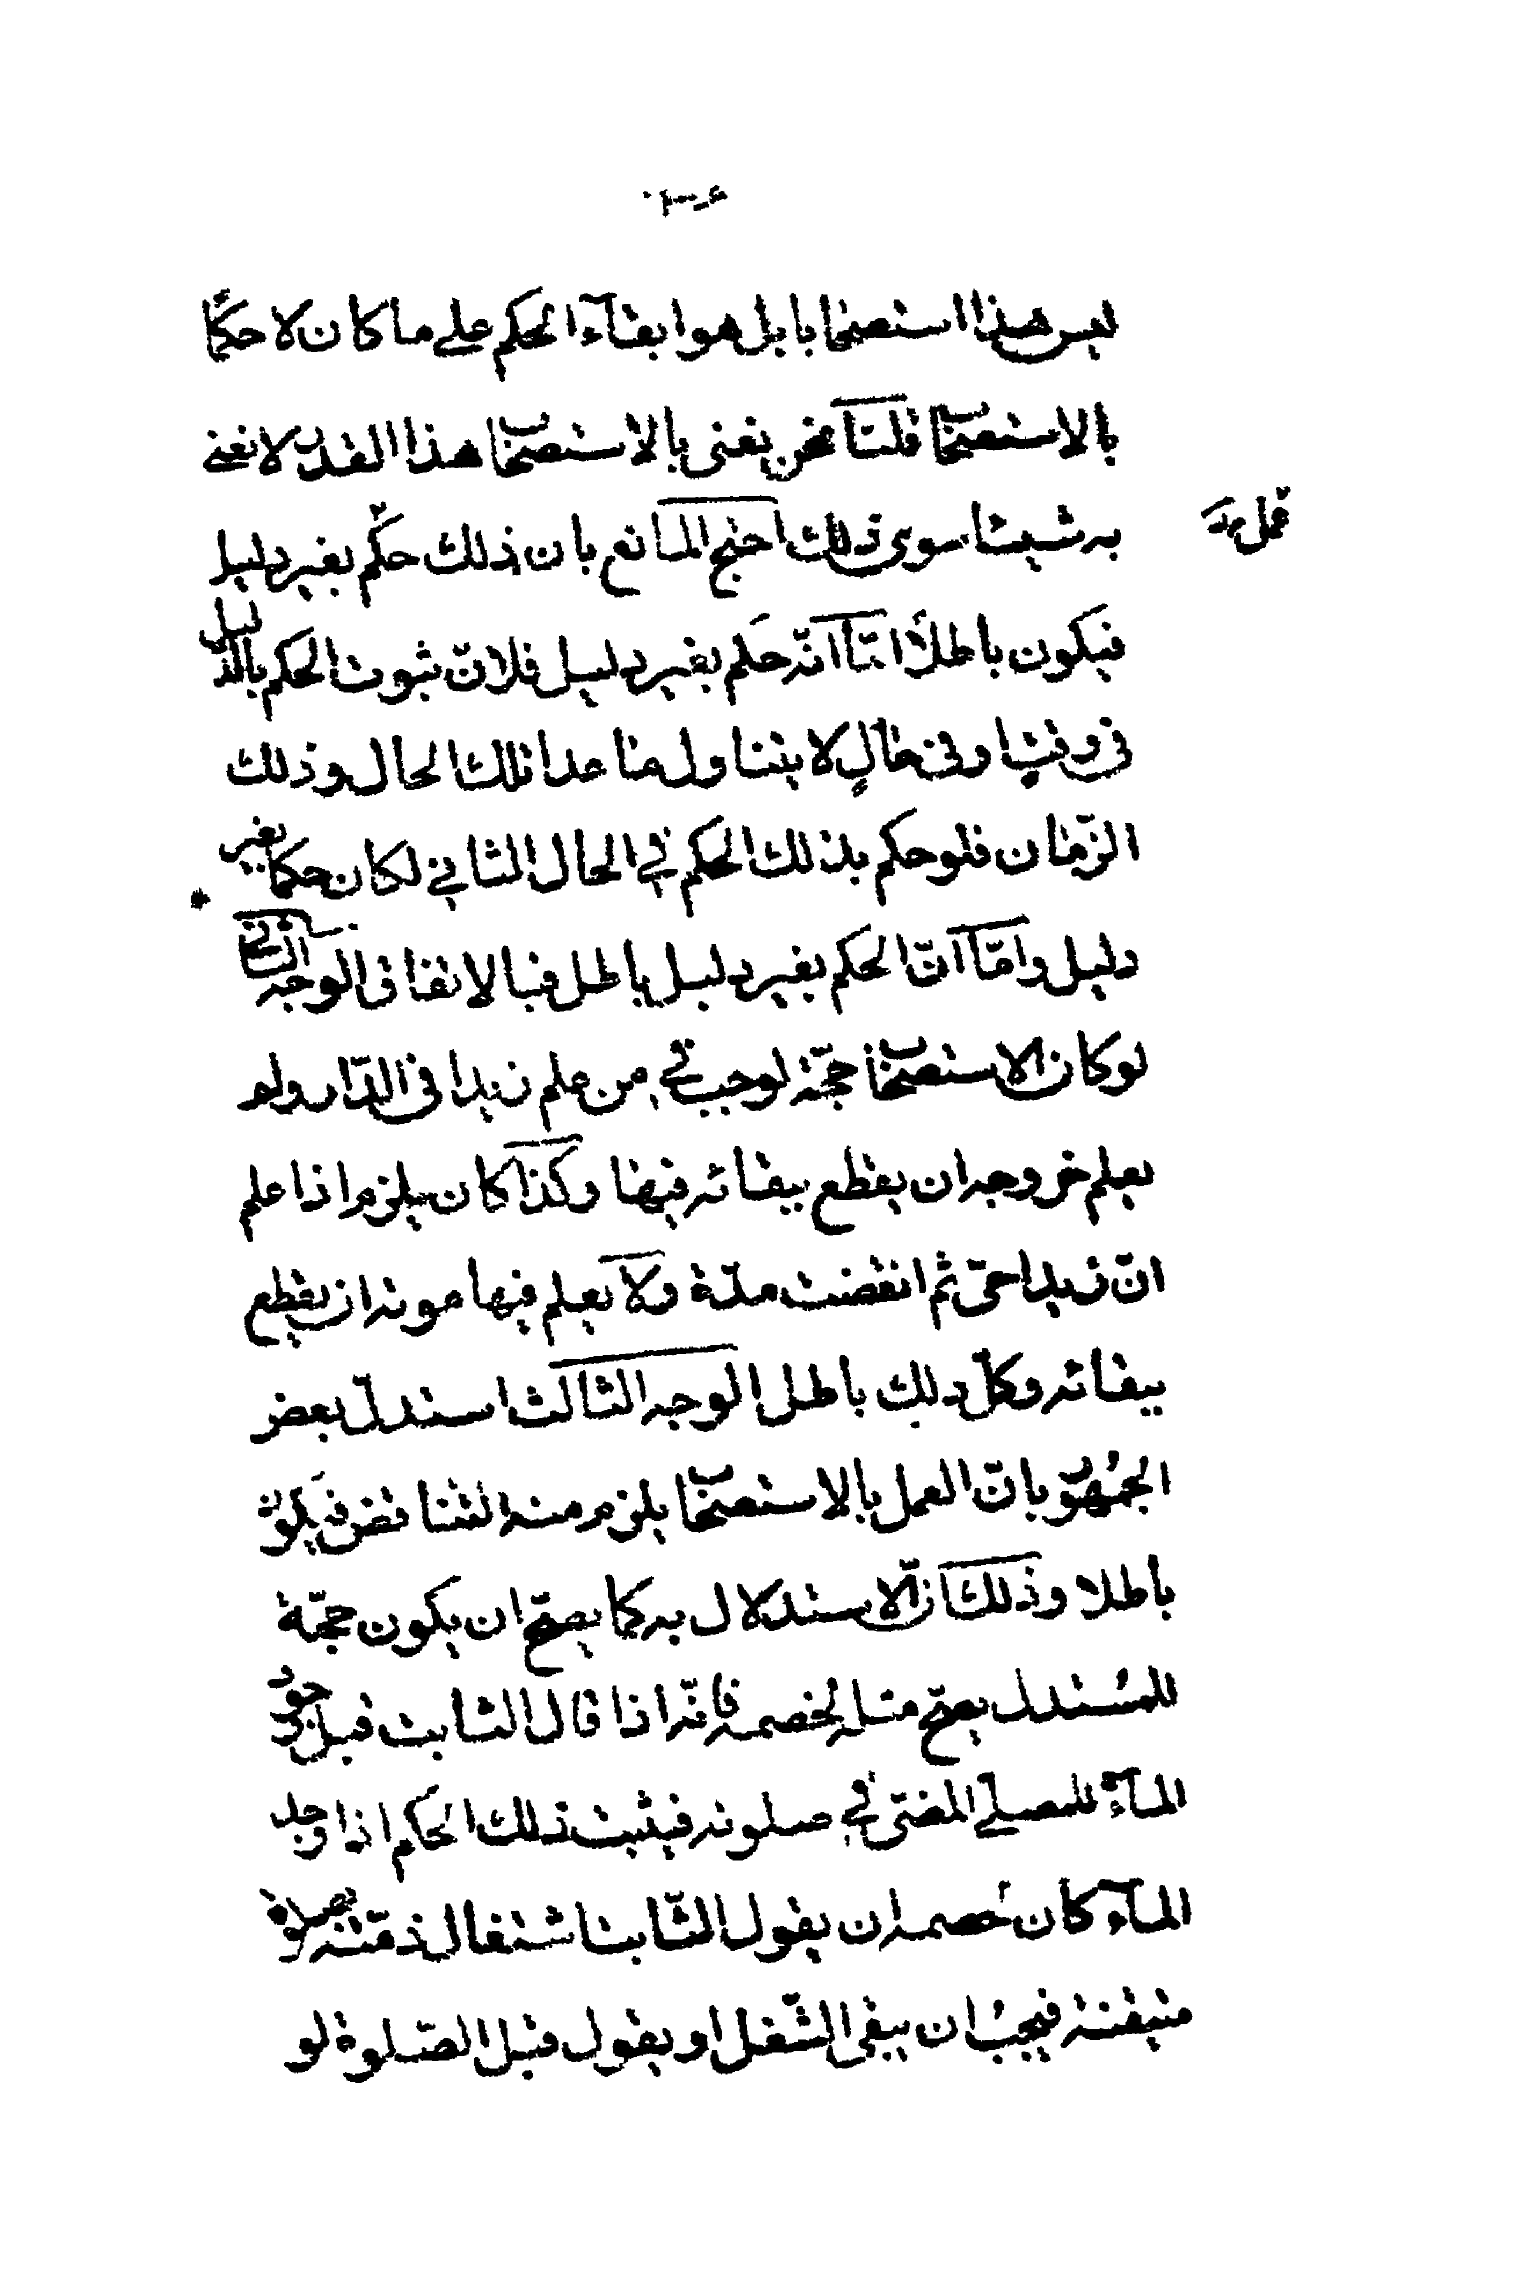 ليس هذا استصحابا بل هو ابقاء الحكم على ما كان لا حكمًا
بالاستصحاب قلنا نحن نعنى بالاستصحاب هذا القدر لا نعنى
به شيئا سوى ذلك احتج المانع بان ذلك حكم بغير دليل
فيكون باطلًا امّا انّه حكم بغير دليل فلانّ ثبوت الحكم بالدليل
فى وقتٍ او فى حالٍ لا يتناول ما عدا تلك الحال وذلك
الزّمان فلو حكم بذلك الحكم في الحال الثاني لكان حكما بغير
دليل وامّا انّ الحكم بغير دليل باطل فبالاتفاق الوجه الثانى
لو كان الاستصحاب حجّة لوجب على من علم زيدا فى الدّار ولم
يعلم خروجه ان يقطع ببقائه فيها وكذا كان يلزم اذا علم
انّ زيدا حىّ ثم انقضت مدّة ولا يعلم فيها موته ان يقطع
ببقائه وكلّ ذلك باطل الوجه الثالث استدلّ بعض
الجمهور بانّ العمل بالاستصحاب يلزم منه التناقض فيكون
باطلا وذلك انّ الاستدلال به كما يصحّ ان يكون حجّة
للمستدل يصحّ مثله لخصمه فانّه اذا قال الثابت قبل وجود
الماء للمصلى المضىّ في صلوته فيثبت ذلك الحكم اذا وجد
الماء كان لخصمه ان يقول الثّابت اشتغال ذمّته بصلوة
متيقنة فيجب ان يبقى الشّغل او يقول قبل الصّلوة لو